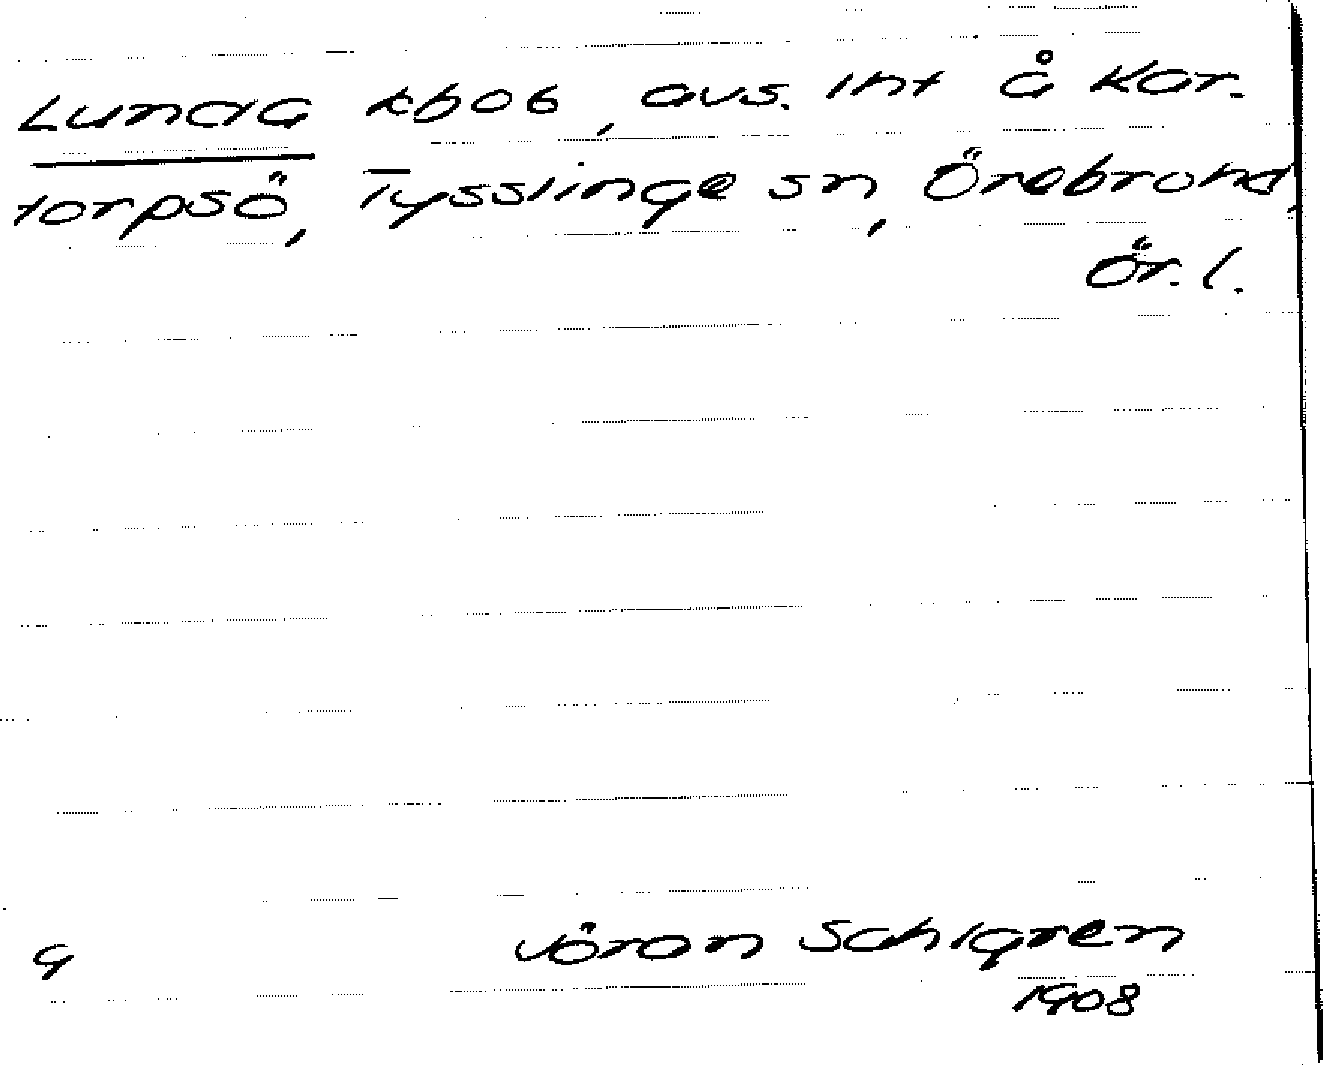 Lunda kb06, avs. int å Kar-
torpsö, Tysslinge sn, Örebrohd,
Ör. l.
9
Jöran Sahlgren
1908